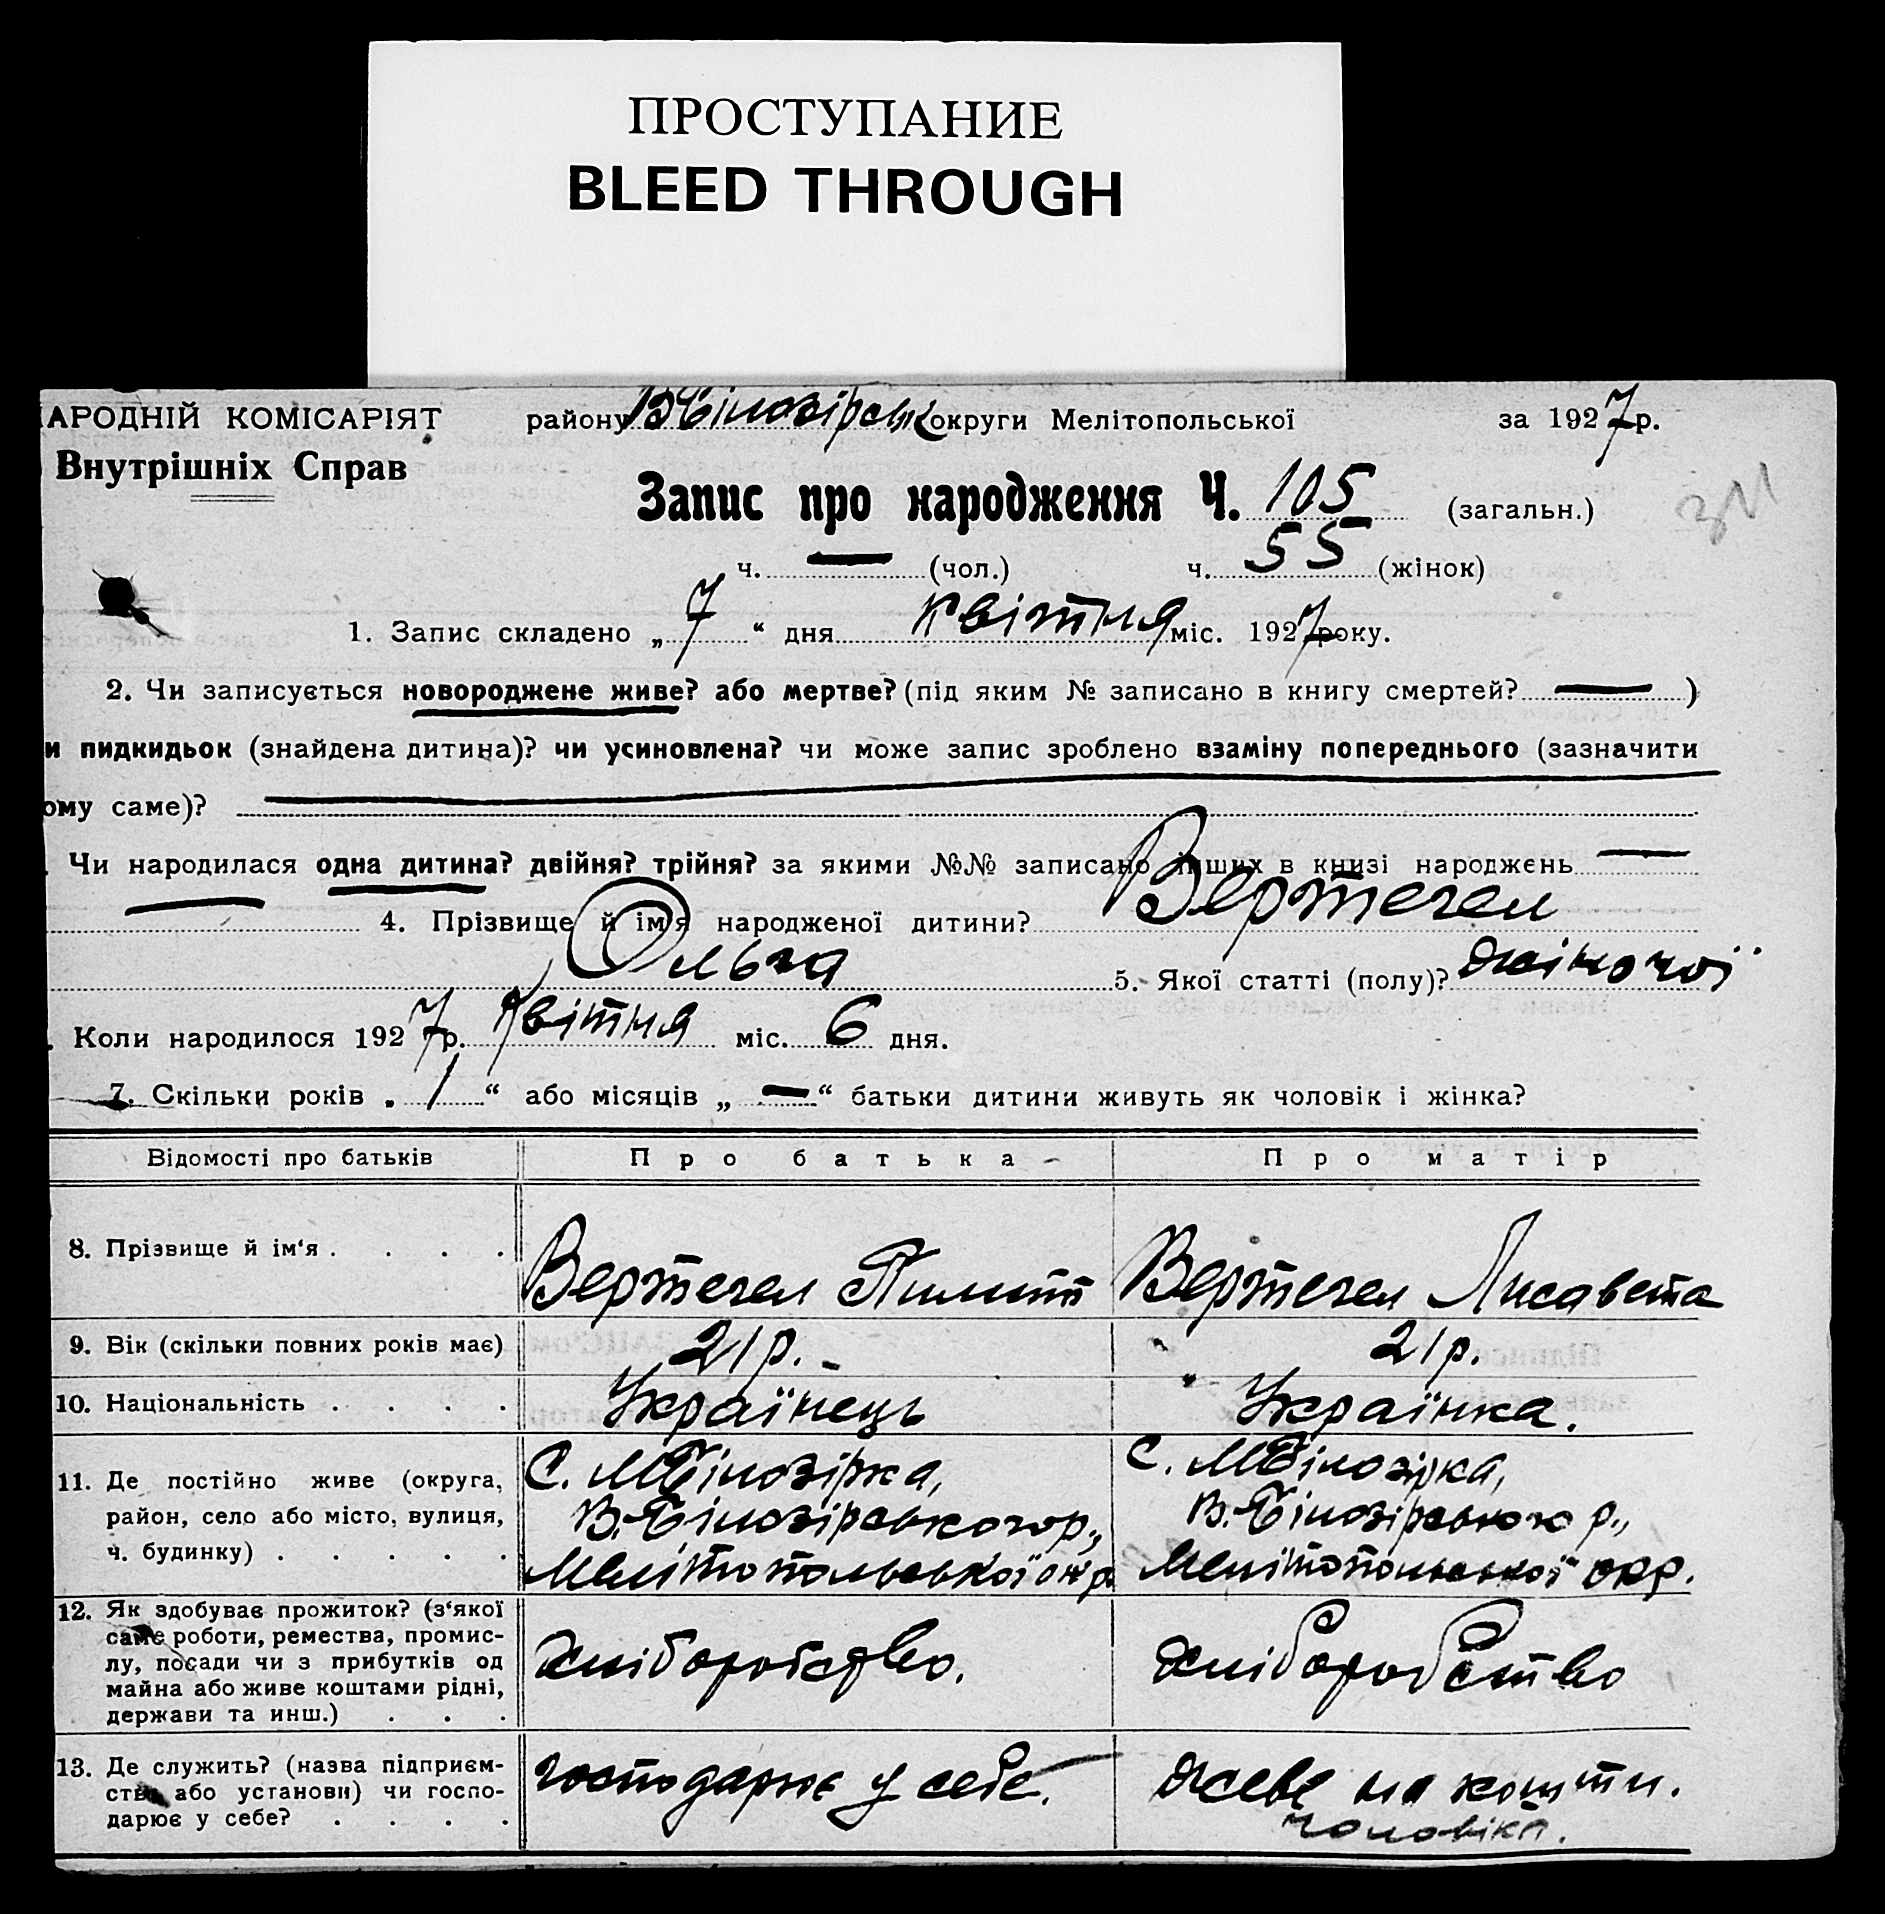 ПРОСТУПАНИЕ
BLEED THROUGH
АРОДНІЙ КОМІСАРІЯТ району В Білозірськ округи Мелітопольської за 1927 р.
Внутрішніх Справ
Запис про народження Ч. 105 (загальн.)
ч. — (чол.) ч. 55 (жінок)
1. Запис складено „ 7 “ дня квітня міс. 1927 року.
2. Чи записується новороджене живе? або мертве? (під яким № записано в книгу смертей? — )
и пидкидьок (знайдена дитина)? чи усиновлена? чи може запис зроблено взаміну попереднього (зазначити
ому саме)?
. Чи народилася одна дитина? двійня? трійня? за якими №№ записано інших в книзі народжень —
— 4. Прізвище й ім'я народженої дитини? Вертегел
Ольга 5. Якої статті (полу)? жіночої
. Коли народилося 1927 р. квітня міс. 6 дня.
7. Скільки років „ 1 “ або місяців „ — “ батьки дитини живуть як чоловік і жінка?
Відомості про батьків Про батька Про матір
8. Прізвище й ім'я . . . . Вертегел Пилипп Вертегел Лисавета
9. Вік (скільки повних років має) 21 р. 21 р.
10. Національність . . . . Українець Українка.
11. Де постійно живе (округа, С. МБілозірка, С. МБілозірка,
район, село або місто, вулиця, В. Білозірського р., В. Білозірського р.,
ч. будинку) . . . . . Мелітопольської окр. Мелітопольської окр.
12. Як здобуває прожиток? (з'якої
саме роботи, ремества, промис-
лу, посади чи з прибутків од хліборобство. хліборобство
майна або живе коштами рідні,
держави та инш.) . . .
13. Де служить? (назва підприєм-
ства або установи) чи госпо- господарює у себе. живе на кошти.
дарює у себе? . . . . чоловіка.